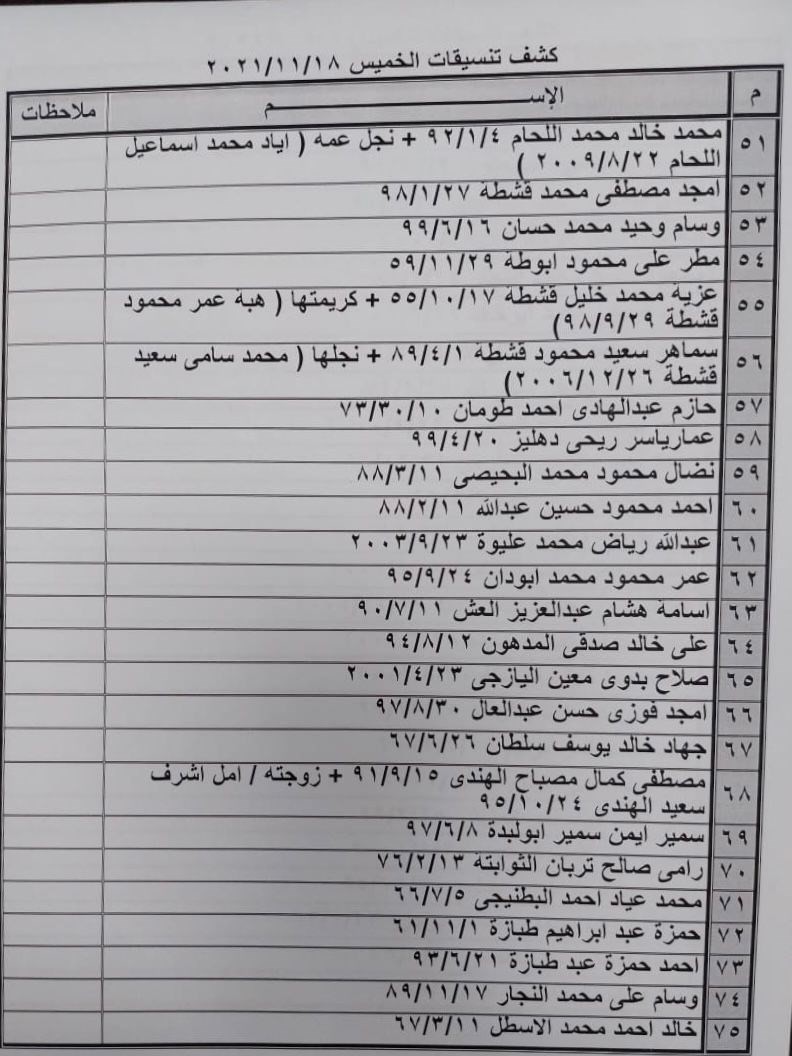 كشف تنسيقات الخميس ٢٠٢١/١١/١٨
م الإســـــــــــــــم ملاحظات
٥١ محمد خالد محمد اللحام ٩٢/١/٤ + نجل عمه ( اياد محمد اسماعيل
اللحام ٢٠٠٩/٨/٢٢ )
٥٢ امجد مصطفى محمد قشطة ٩٨/١/٢٧
٥٣ وسام وحيد محمد حسان ٩٩/٦/١٦
٥٤ مطر على محمود ابوطة ٥٩/١١/٢٩
٥٥ عزية محمد خليل قشطة ٥٥/١٠/١٧ + كريمتها ( هبة عمر محمود
قشطة ٩٨/٩/٢٩)
٥٦ سماهر سعيد محمود قشطة ٨٩/٤/١ + نجلها ( محمد سامى سعيد
قشطة ٢٠٠٦/١٢/٢٦)
٥٧ حازم عبدالهادى احمد طومان ٧٣/٣٠/١٠
٥٨ عمارياسر ريحى دهليز ٩٩/٤/٢٠
٥٩ نضال محمود محمد البحيصى ٨٨/٣/١١
٦٠ احمد محمود حسين عبدالله ٨٨/٢/١١
٦١ عبدالله رياض محمد عليوة ٢٠٠٣/٩/٢٣
٦٢ عمر محمود محمد ابودان ٩٥/٩/٢٤
٦٣ اسامة هشام عبدالعزيز العش ٩٠/٧/١١
٦٤ على خالد صدقى المدهون ٩٤/٨/١٢
٦٥ صلاح بدوى معين اليازجى ٢٠٠١/٤/٢٣
٦٦ امجد فوزى حسن عبدالعال ٩٧/٨/٣٠
٦٧ جهاد خالد يوسف سلطان ٦٧/٦/٢٦
٦٨ مصطفى كمال مصباح الهندى ٩١/٩/١٥ + زوجته / امل اشرف
سعيد الهندى ٩٥/١٠/٢٤
٦٩ سمير ايمن سمير ابولبدة ٩٧/٦/٨
٧٠ رامى صالح تربان الثوابتة ٧٦/٢/١٣
٧١ محمد عياد احمد البطنيجى ٦٦/٧/٥
٧٢ حمزة عبد ابراهيم طبازة ٦١/١١/١
٧٣ احمد حمزة عبد طبازة ٩٣/٦/٢١
٧٤ وسام على محمد النجار ٨٩/١١/١٧
٧٥ خالد احمد محمد الاسطل ٦٧/٣/١١